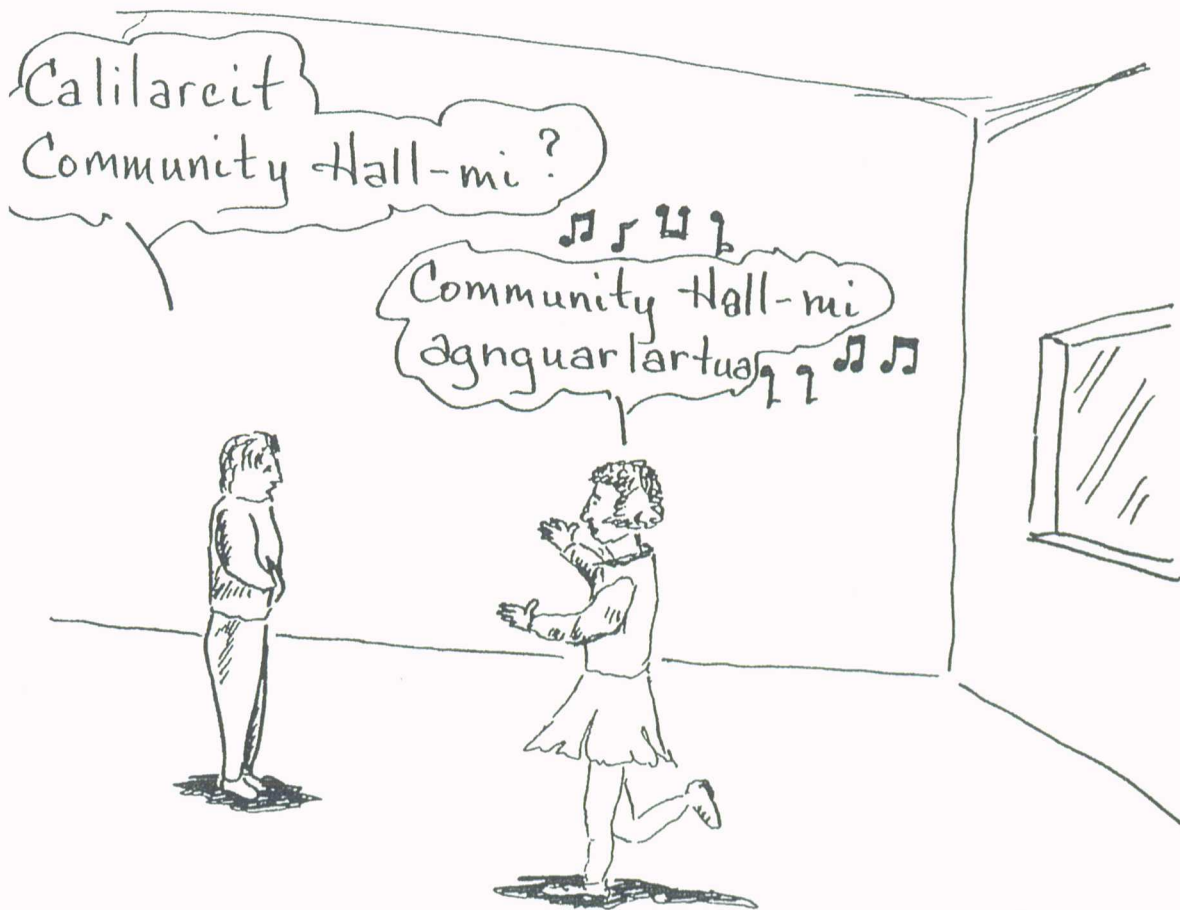 Calilarcit
Community Hall-mi?
Community Hall-mi
agnguarlartua